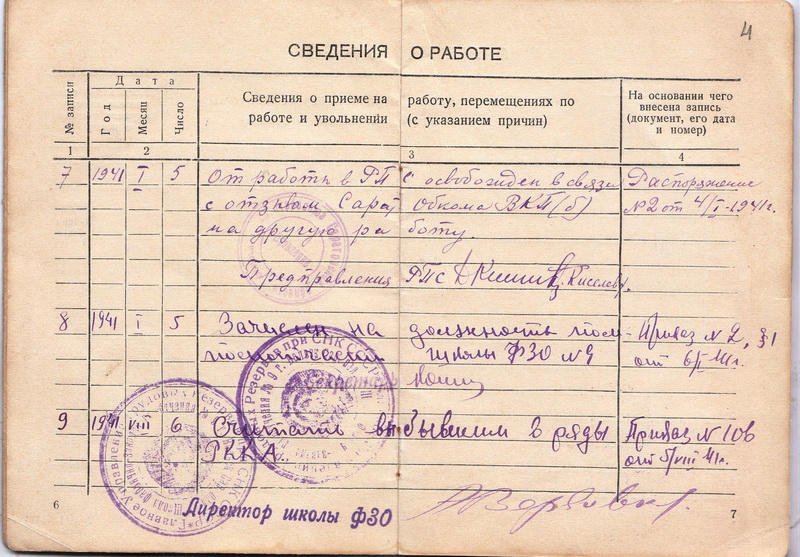 4
СВЕДЕНИЯ О РАБОТЕ
№ записи
Дата
Год
Месяц
Число
Сведения о приеме на работу, перемещениях по
работе и увольнении (с указанием причин)
На основании чего
внесена запись
(документ, его дата
и номер)
1 2 3 4
7 1941 I 5 От работы в РПС освобожден в связи Распоряжение
с отзывом Сарат Обкома ВКП(б) №2 от 4/I-1941г.
на другую работу.
Предправления РПС Киселев.
8 1941 I 5 Зачислен на должность пом- Приказ № 2, §1
школы ФЗО №9 от 6/I 41г.
9 1941 VIII 6 Считать выбывшим в ряды Приказ № 106
РККА. от 5/VIII 41г.
Директор школы ФЗО
6
7